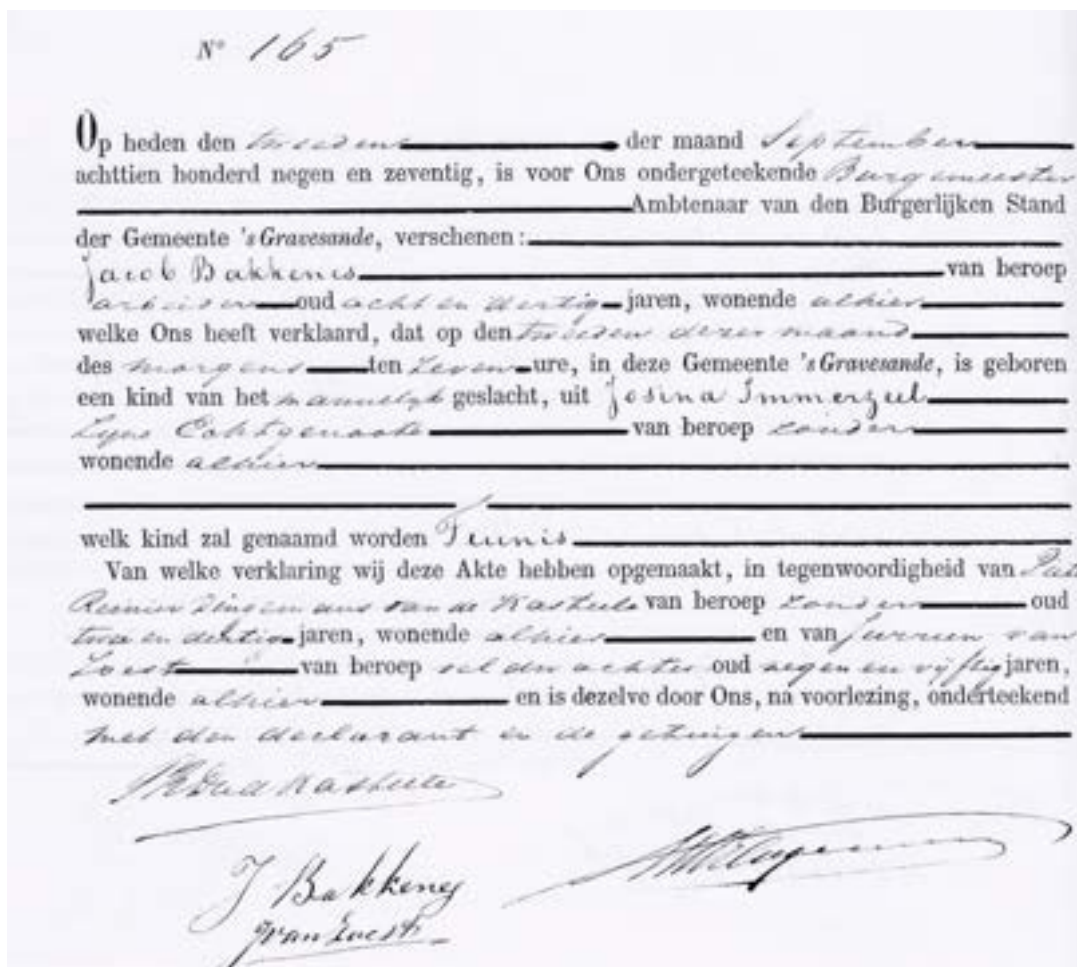 N° 165
Op heden den tweeden der maand September
achttien honderd negen en zeventig, is voor Ons ondergeteekende Burgemeester
Ambtenaar van den Burgerlijken Stand
der Gemeente 's Gravesande, verschenen:
Jacob Bakkenes van beroep
arbeider oud acht en dertig jaren, wonende alhier
welke Ons heeft verklaard, dat op den tweeden dezer maand
des morgens ten zeven ure, in deze Gemeente 's Gravesande, is geboren
een kind van het mannelijk geslacht, uit Josina Immerzeel
Zijne Echtgenoote van beroep zonder
wonende alhier
welk kind zal genaamd worden Teunis
Van welke verklaring wij deze Akte hebben opgemaakt, in tegenwoordigheid van
Reinier Dingemans van de Kasteele van beroep zonder oud
twee en dertig jaren, wonende alhier en van Jurrien van
Zoest van beroep veldwachter oud negen en vijftig jaren,
wonende alhier en is dezelve door Ons, na voorlezing, onderteekend
met den declarant en de getuigen
Kasteele
J Bakkenes
J van Zoest